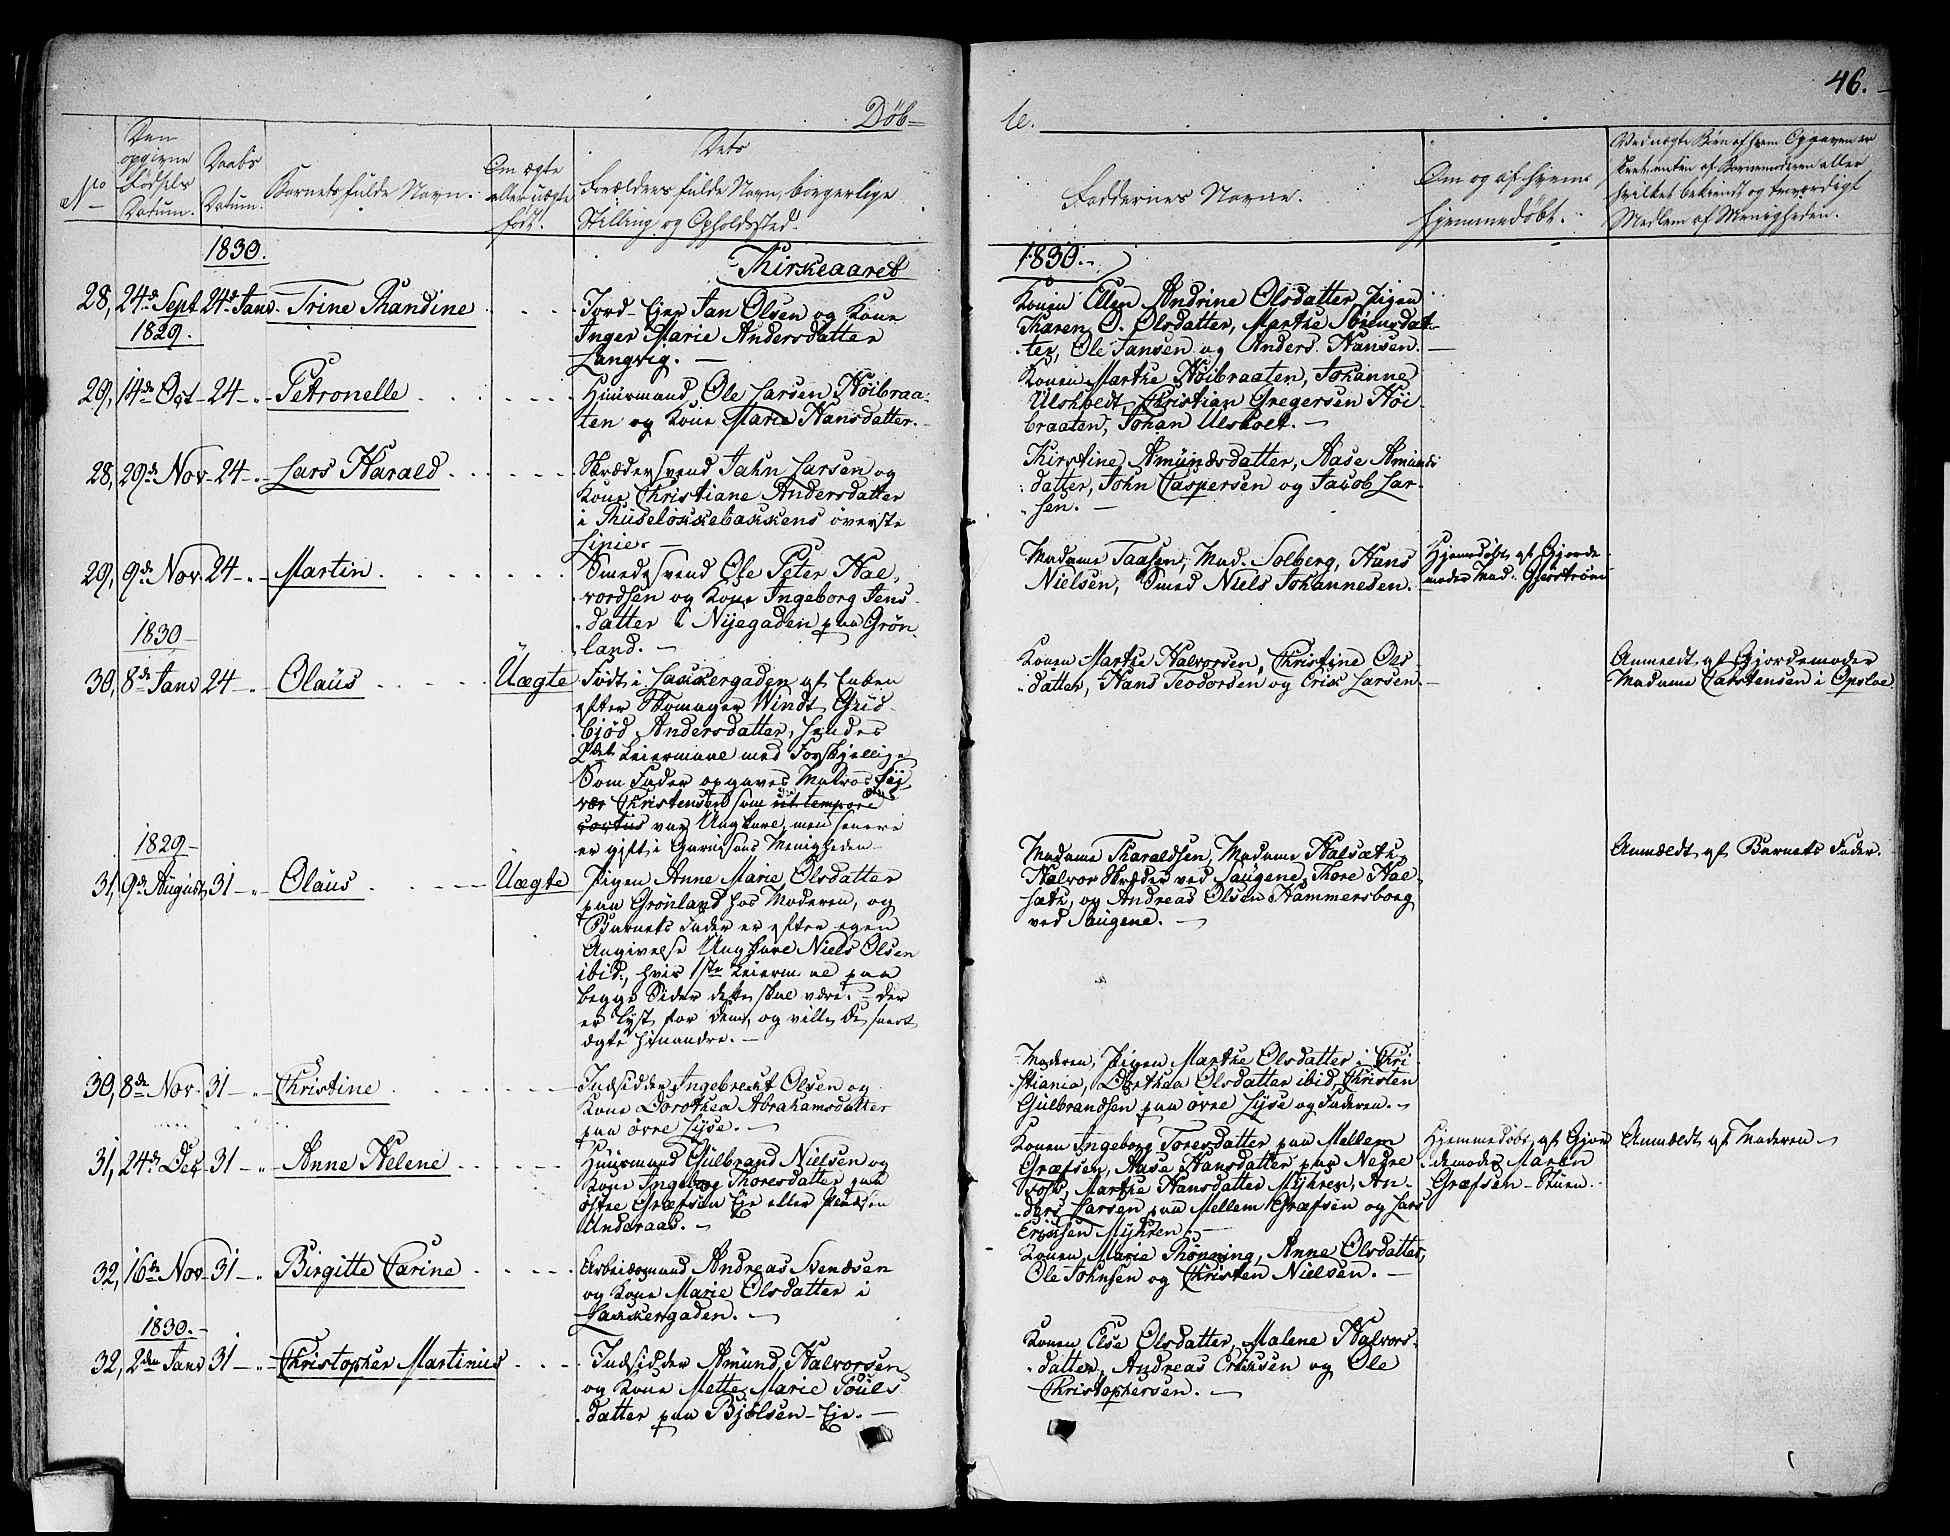 46.
Døb-
te.
No
Den opgivne Fødsels Datum.
Daabs Datum.
Barnets fulde Navn.
Om ægte eller uægte født.
Dets Forældres fulde Navn, borgerlige Stilling og Opholdssted.
Faddernes Navne.
Om og af hvem hjemmedøbt.
Ved uægte Børn af hvem Opgaven er skeet enten af Barnemoderen eller hvilket bekiendt og troværdigt Medlem af Menigheden.
1830.
Kirkeaaret
1830.
28, 24de Sept 24de Janv. Trine Randine
1829.
Jord-Ejer Jan Olsen og Kone
Inger Marie Andersdatter
Langvig.
Konen Ellen Andrine Olsdatter, Pigen
Karen O. Olsdatter, Marthe Sörensdat-
ter, Ole Jansen og Anders Hansen.
29, 14de Oct 24 Petronelle
Huusmand Ole Larsen Höibraa-
ten og Kone Marie Hansdatter.
Konen Marthe Höibraaten, Johanne
Ulsholdt, Christian Gregersen Höi-
braaten, Johan Ulsholt.
28, 29de Nov 24 Lars Harald
Skrædersvend Jahn Larsen og
Kone Christiane Andersdatter
i Ruselökkebakkens överste
Linie.
Kirstine Amundsdatter, Aase Amunds
datter, John Caspersen og Jacob Lar-
sen.
29, 9de Nov 24 Martin
Smedesvend Ole Peter Hal-
vordsen og Kone Ingeborg Jens-
datter i Nyegaden paa Grön-
land.
Madame Taasen, Mad. Solberg, Hans
Nielsen, Smed Niels Johannesen.
Hjemmedöbt af Gjorde-
moder Mad. Gjerström
1830
30, 8de Janv 24 Olaus Uægte
Födt i Lakkergaden af Enken
efter Skomager Windt Gud-
bjöd Andersdatter, hendes
2det Leiermaal med Forskjellige
Som Fader opgaves Matros Sy-
vær Christensen som
var Ungkarl, men senere
er gift i Garnisons Menigheden
Konen Marthe Halvorsen, Christine Ols-
datter, Hans Teodorsen og Erik Larsen.
Anmeldt af Gjordemoder
Madame Carstensen i Opsloe
1829
31, 9de August, 31 Olaus Uægte
Pigen Anne Marie Olsdatter
paa Grönland hos Moderen, og
Barnets Fader er efter egen
Angivelse Ungkarl Niels Olsen
ibid., hvis 1ste Leierm al paa
begge Sider dette skal være. Der
er lyst for dem, og ville de snart
ægte hinandre.
Madame Tharaldsen, Madame Halsæth,
Halvor Skræder ved Saugene, Thore Hal-
sæth, og Andreas Olsen Hammersborg
ved Saugene.
Anmældt af Barnets Fader.
30, 8de Nov. 31 Christine
Indsidder Ingebrect Olsen og
Kone Dorothea Abrahamsdatter
paa övre Lyse.
Moderen, Pigen Marthe Olsdatter i Chri-
stiania, Dorthea Olsdatter ibid, Christen
Gulbrandsen paa övre Lyse og Faderen.
31, 24de Dec 31 Anne Helene
Huusmand Gulbrand Nielsen og
Kone Ingeborg Thoresdatter paa
östre Græfsen Eje eller Pladsen
Underaas.
Konen Ingeborg Toresdatter paa Mellem
Græfsen, Aase Hansdatter paa Nedre
Marthe Hansdatter Myhren, An-
ders Larsen paa Mellem Græfsen og Lars
Eriksen Myhren.
Hjemmedöbt af Gjor-
demoder Maren
Græfsen-Stuen.
Anmældt af Moderen
32, 16de Nov 31 Birgitte Carine
Arbeidsmand Andreas Svendsen
og Kone Marie Olsdatter i
Lakkergaden.
Konen Marie Rönning, Anne Olsdatter,
Ole Johnsen og Christen Nielsen.
1830.
32, 2den Janv 31 Christopher Martinius
Indsidder Amund Halvorsen
og Kone Mette Marie Pouls
datter paa Bjölsen-Eje.
Konen Else Olsdatter, Malene Halvors-
datter, Andreas Eriksen og Ole
Christophersen.